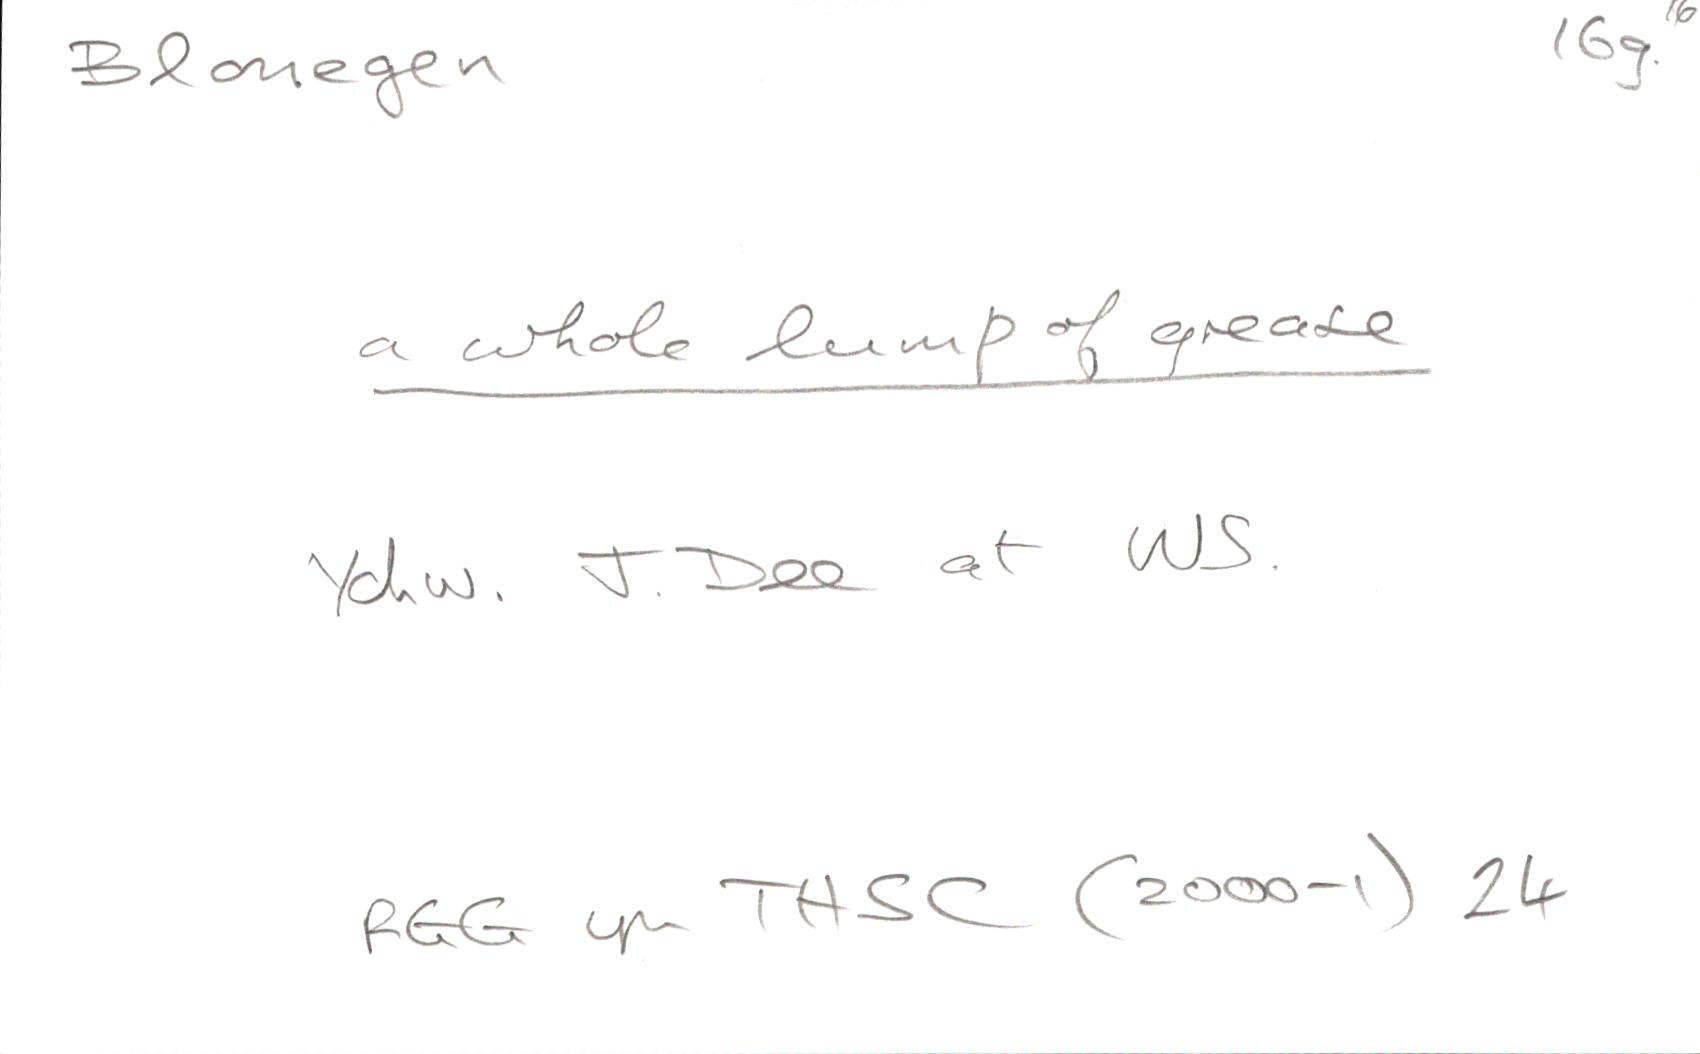 Blonegen 16g.16
a whole lump of grease
Ychw. J. Dee at WS.
RGG yn THSC (2000-1) 24